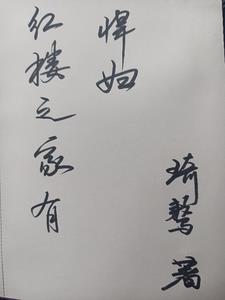 红楼之家有
悍妇
琦鹥著